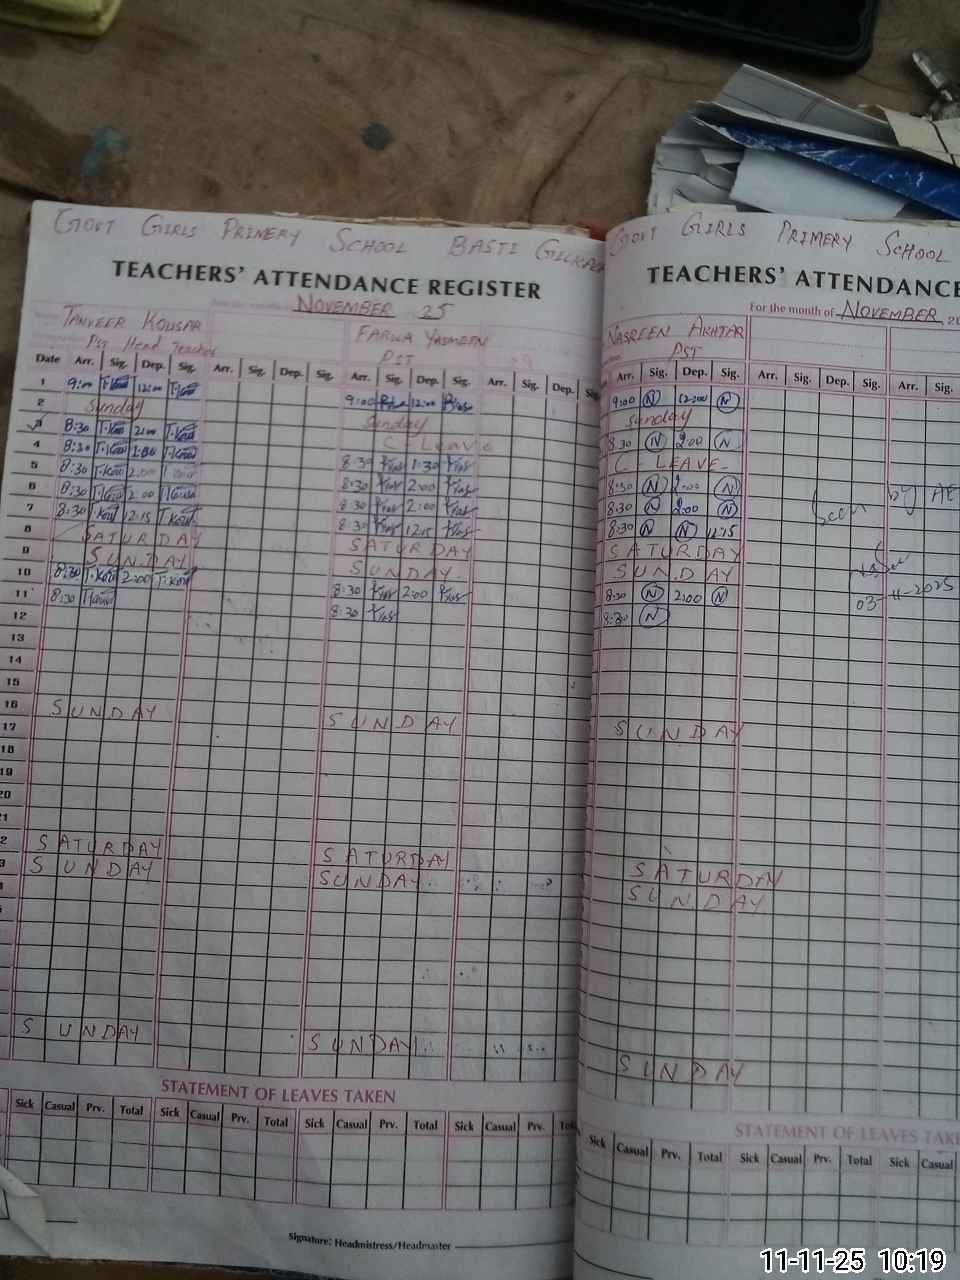 GOVT GIRLS PRIMERY SCHOOL BASTI
TEACHERS' ATTENDANCE REGISTER
NOVEMBER 25
TANVEER KOUSAR
PST Head Teacher
FARWA YASMEEN
PST
Date Arr. Sig. Dep. Sig. Arr. Sig. Dep. Sig. Arr. Sig. Dep. Sig. Arr. Sig. Dep. Sig.
1 9:00 12:00 9:00 12:00
2 Sunday Sunday
3 8:30 2:00 C Leave
4 8:30 1:30 8:30 1:30
5 8:30 2:00 8:30 2:00
6 8:30 2:00 8:30 2:00
7 8:30 12:15 8:30 12:15
8 SATURDAY SATURDAY
9 SUNDAY SUNDAY
10 8:30 2:00 8:30 2:00
11 8:30 8:30
12
13
14
15
16 SUNDAY SUNDAY
17
18
19
20
21
2 SATURDAY SATURDAY
3 SUNDAY SUNDAY
SUNDAY SUNDAY
STATEMENT OF LEAVES TAKEN
Sick Casual Prv. Total Sick Casual Prv. Total Sick Casual Prv. Total Sick Casual Prv.
Signature: Headmistress/Headmaster
GOVT GIRLS PRIMERY SCHOOL
TEACHERS' ATTENDANCE
For the month of NOVEMBER 20
NASREEN AKHTAR
PST
Arr. Sig. Dep. Sig. Arr. Sig. Dep. Sig. Arr. Sig.
9:00 N 12:00 N
Sunday
8:30 N 2:00 N
C-LEAVE
8:30 N 2:00 N
8:30 N 2:00 N
8:30 N N 12:15
SATURDAY
SUNDAY
8:30 N 2:00 N
8:30 N
Seen by AE
03-11-2025
SUNDAY
SATURDAY
SUNDAY
SUNDAY
STATEMENT OF LEAVES TAKE
Sick Casual Prv. Total Sick Casual Prv. Total Sick Casual
11-11-25 10:19